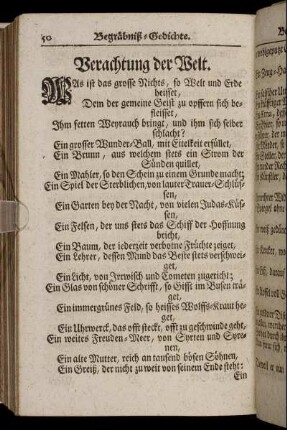 50 Begräbniß-Gedichte.
Verachtung der Welt.
WAs ist das grosse Nichts, so Welt und Erde
heisset,
Dem der gemeine Geist zu opffern sich be-
fleisset,
Ihm fetten Weyrauch bringt, und ihm sich selber
schlacht?
Ein grosser Wunder-Ball, mit Eitelkeit erfüllet,
Ein Brunn, aus welchem stets ein Strom der
Sünden quillet,
Ein Mahler, so den Schein zu einem Grunde macht;
Ein Spiel der Sterblichen, von lauter Trauer-Schlüs-
sen,
Ein Garten bey der Nacht, von vielen Judas-Küs-
sen,
Ein Felsen, der uns stets das Schiff der Hoffnung
bricht,
Ein Baum, der iederzeit verbotne Früchte zeiget,
Ein Lehrer, dessen Mund das Beste stets verschwei-
get,
Ein Licht, von Irrwisch und Cometen zugericht;
Ein Glas von schöner Schrifft, so Gifft im Busen trä-
get,
Ein immergrünes Feld, so heisses Wolffs-Kraut he-
get,
Ein Uhrwerck, das offt steckt, offt zu geschwinde geht,
Ein weites Freuden-Meer, von Syrten und Syre-
nen,
Ein alte Mutter, reich an tausend bösen Söhnen,
Ein Greiß, der nicht zu weit von seinem Ende steht:
Ein